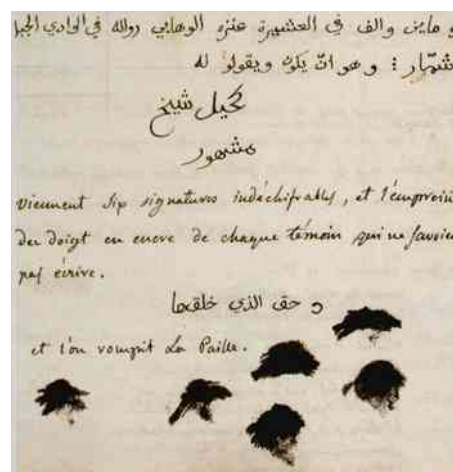 و مايتين والف في العشيرة عنزه الوهابي رواله في الوادي الجبل
شمّار : و هو انّ يكون ويقولو له
كحيل شيخ
مشهور
viennent six signatures indéchifrables, et l'emprein
der doigt en encre de chaque témoin qui ne savoien
pas écrire.
و حق الذي خلقها
et l'on rompit La Paille.